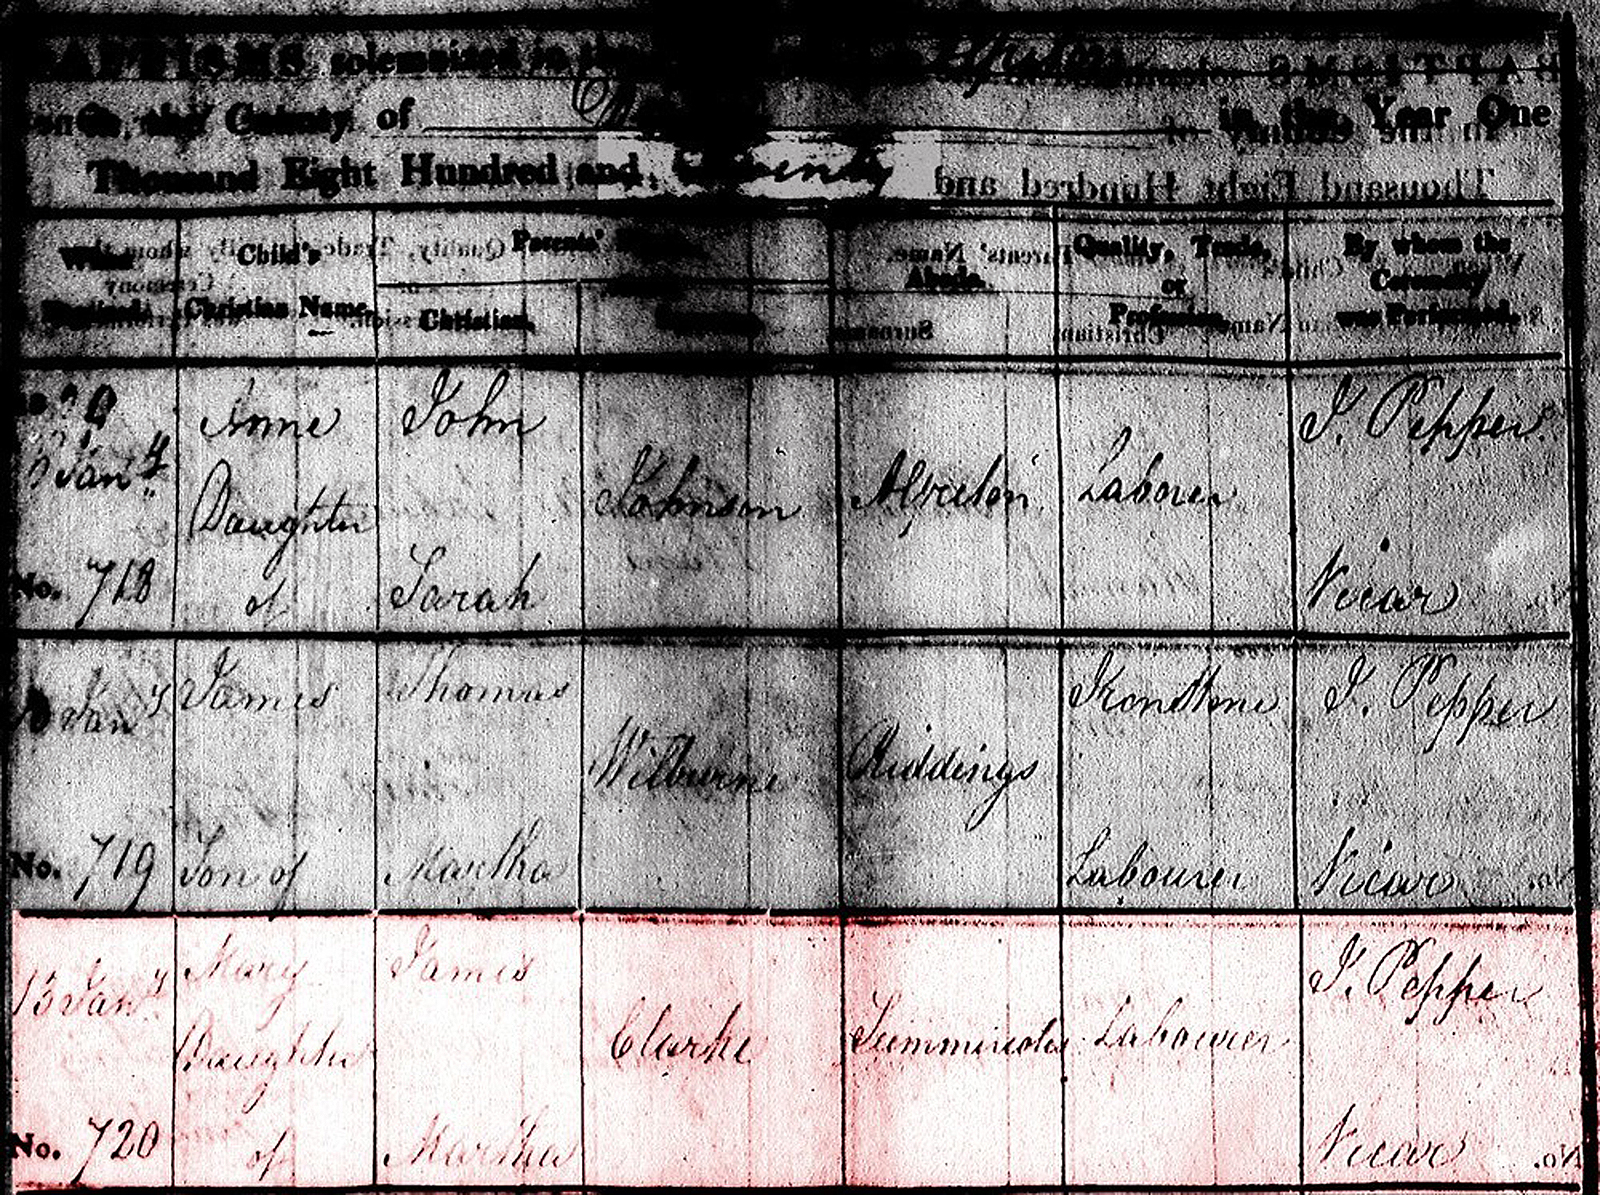 BAPTISMS solemnized in the
in the County of in the Year One
Thousand Eight Hundred and Twenty
When Baptized.
Child's Christian Name.
Parents' Name.
Christian.
Surname.
Abode.
Quality, Trade, or Profession.
By whom the Ceremony was Performed.
Jany
No. 718
Anne
Daughter
of
John
Sarah
Johnson
Alfreton
Labourer
J. Pepper
Vicar
Jany
No. 719
James
Son of
Thomas
Martha
Wilburne
Riddings
Ironstone
Labourer
J. Pepper
Vicar
13 Jany
No. 720
Mary
Daughter
of
James
Martha
Clarke
Summercotes
Labourer
J. Pepper
Vicar